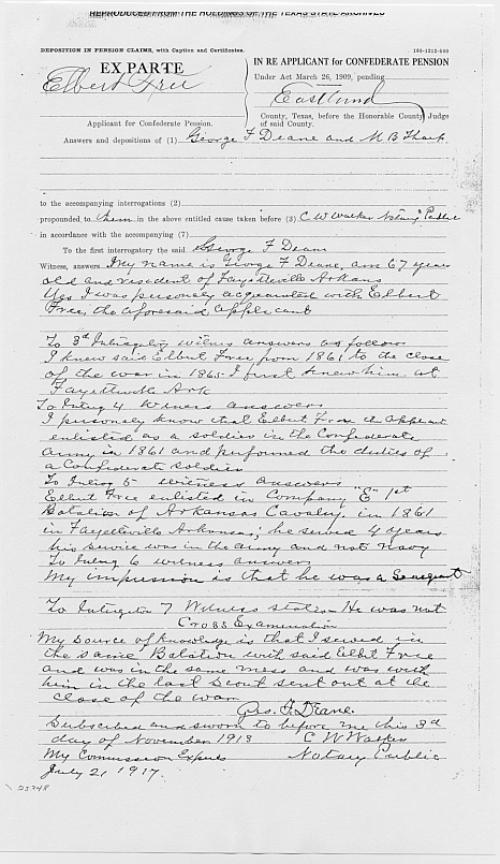 REPRODUCED FROM THE HOLDINGS OF THE TEXAS STATE ARCHIVES
DEPOSITION IN PENSION CLAIMS, with Caption and Certificates.
EX PARTE
Elbert Free
Applicant for Confederate Pension.
IN RE APPLICANT for CONFEDERATE PENSION
Under Act March 26, 1909, pending
Eastland
County, Texas, before the Honorable County Judge
of said County.
Answers and depositions of (1) George F Deane and M B Tharp
to the accompanying interrogations (2)
propounded to them in the above entitled cause taken before (3) C W Walker Notary Public
in accordance with the accompanying (7)
To the first interrogatory the said George F Deane
Witness, answers My name is George F Deane, am 67 years
old and resident of Fayetteville Arkans
Yes I was personely acquainted with Elbert
Free, the aforesaid applicant
To 3d Intirogatory witness answers as follows
I knew said Elbert Free from 1861 to the close
of the war in 1865. I first knew him at
Fayetteville Ark
To Interog 4 Witness answers
I personely know that Elbert Free the applicant
enlisted as a soldier in the Confederate
Army in 1861 and performed the duties of
a Confederate soldier
To Interog 5 witness answers
Elbert Free enlisted in Company "E" 1st
Batalion of Arkansas Cavalry, in 1861
in Fayetteville Arkansas; he served 4 years
his service was in the army and not Navy
To Interog 6 witness answers
My impression is that he was a Sergeant
To Interogator 7 Witness states He was not
Cross Examination
My source of knowledge is that I served in
the same Balation with said Elbert Free
and was in the same mess and was with
him in the last Scout sent out at the
close of the war
Geo. F. Deane.
Subscribed and sworn to before me this 3d
day of November 1913 C W Walker
My Commission Expires Notary Public
July 21 1917.
23748